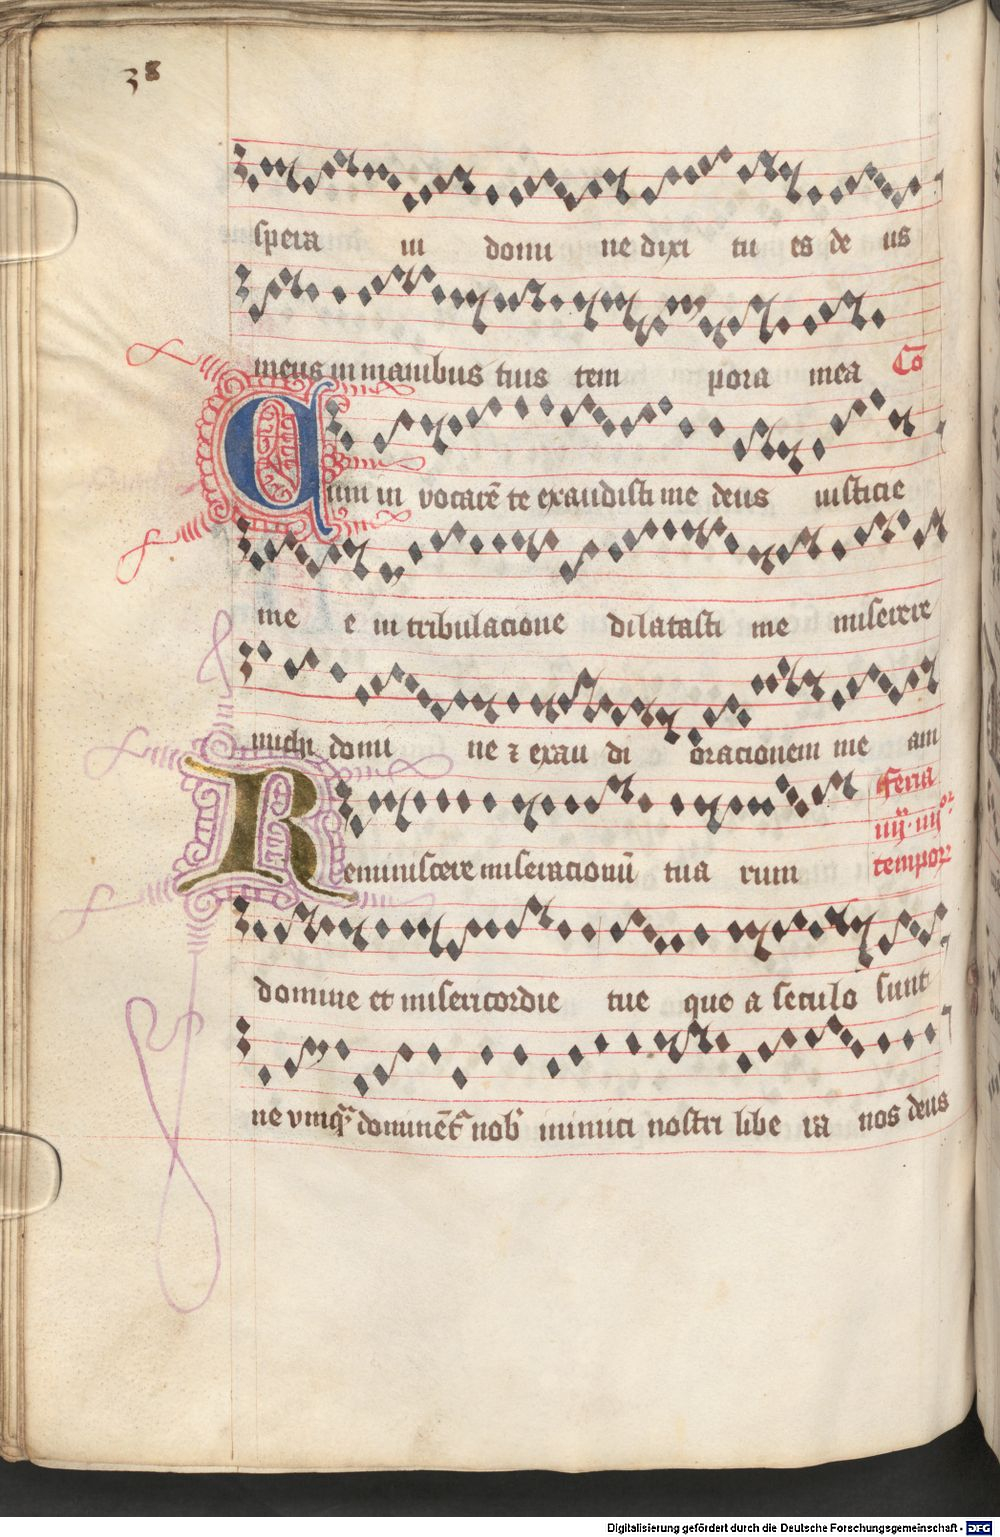 38
spera ui domi ne dixi tu es de us
meus in manibus tuis tem pora mea Co
Cum in vocarē te exaudisti me deus iusticie
me e in tribulacione dilatasti me miserere
michi domi ne ⁊ exau di oracionem me am
feria
Reminiscere miseracionū tua rum
iiij · iiijor
tempor
domine et misericordie tue que a seculo sunt
ne vmq̄ᵃ dominēt nob' inimici nostri libe ra nos deus
Digitalisierung gefördert durch die Deutsche Forschungsgemeinschaft - DFG